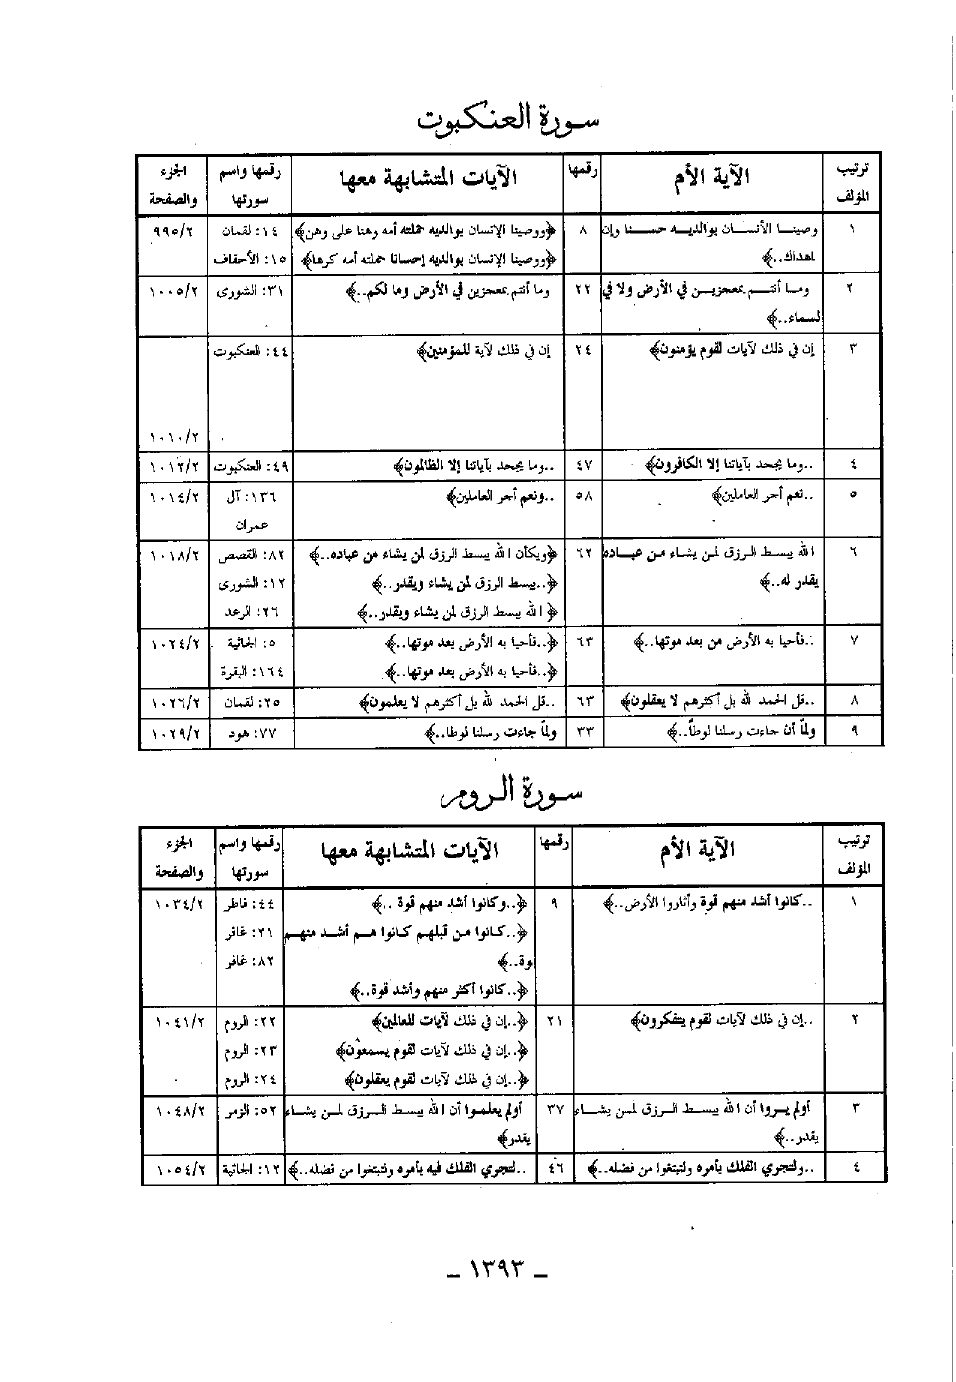 سورة العنكبوت
ترتيب المؤلف | الآية الأم | رقمها | الآيات المتشابهة معها | رقمها واسم سورتها | الجزء والصفحة
١ | وصينا الأنسان بوالديه حسنا وإن | ٨ | ﴿ووصينا الإنسان بوالديه حملته أمه وهنا على وهن﴾ | ١٤: لقمان | ٩٩٥/٢
اهداك..﴾ | ﴿ووصينا الإنسان بوالديه إحسانا حملته أمه كرها﴾ | ١٥: الأحقاف
٢ | وما أنتم بمعجزين في الأرض ولا في | ٢٢ | وما أنتم بمعجزين في الأرض وما لكم..﴾ | ٣١: الشورى | ١٠٠٥/٢
لسماء..﴾
٣ | إن في ذلك لآيات لقوم يؤمنون﴾ | ٢٤ | إن في ذلك لآية للمؤمنين﴾ | ٤٤: العنكبوت
١٠١٠/٢
٤ | ..وما يجحد بآياتنا إلا الكافرون﴾ | ٤٧ | ..وما يجحد بآياتنا إلا الظالمون﴾ | ٤٩: العنكبوت | ١٠١٢/٢
٥ | ..نعم أجر العاملين﴾ | ٥٨ | ..ونعم أجر العاملين﴾ | ١٣٦: آل | ١٠١٤/٢
عمران
٦ | الله يبسط الرزق لمن يشاء من عباده | ٦٢ | ﴿ويكأن الله يبسط الرزق لمن يشاء من عباده..﴾ | ٨٢: القصص | ١٠١٨/٢
يقدر له..﴾ | ﴿..يبسط الرزق لمن يشاء ويقدر..﴾ | ١٢: الشورى
﴿ الله يبسط الرزق لمن يشاء ويقدر..﴾ | ٢٦: الرعد
٧ | ..فأحيا به الأرض من بعد موتها..﴾ | ٦٣ | ﴿..فأحيا به الأرض بعد موتها..﴾ | ٥: الجاثية | ١٠٢٤/٢
﴿..فأحيا به الأرض بعد موتها..﴾ | ١٦٤: البقرة
٨ | ..قل الحمد لله بل أكثرهم لا يعقلون﴾ | ٦٣ | ..قل الحمد لله بل أكثرهم لا يعلمون﴾ | ٢٥: لقمان | ١٠٢٦/٢
٩ | ولمّا أن جاءت رسلنا لوطاً..﴾ | ٣٣ | ولمّا جاءت رسلنا لوطا..﴾ | ٧٧: هود | ١٠٢٩/٢
سورة الروم
ترتيب المؤلف | الآية الأم | رقمها | الآيات المتشابهة معها | رقمها واسم سورتها | الجزء والصفحة
١ | ..كانوا أشد منهم قوة وأثاروا الأرض..﴾ | ٩ | ﴿..وكانوا أشد منهم قوة ..﴾ | ٤٤: فاطر | ١٠٣٤/٢
﴿..كانوا من قبلهم كانوا هم أشد منهم | ٢١: غافر
وة..﴾ | ٨٢: غافر
﴿..كانوا أكثر منهم وأشد قوة..﴾
٢ | ..إن في ذلك لآيات لقوم يتفكرون﴾ | ٢١ | ﴿..إن في ذلك لآيات للعالمين﴾ | ٢٢: الروم | ١٠٤١/٢
﴿..إن في ذلك لآيات لقوم يسمعون﴾ | ٢٣: الروم
﴿..إن في ذلك لآيات لقوم يعقلون﴾ | ٢٤: الروم
٣ | أولم يروا أن الله يبسط الرزق لمن يشاء | ٣٧ | أولم يعلموا أن الله يبسط الرزق لمن يشاء | ٥٢: الزمر | ١٠٤٨/٢
يقدر..﴾ | يقدر﴾
٤ | ..ولتجري الفلك بأمره ولتبتغوا من فضله..﴾ | ٤٦ | ..لتجري الفلك فيه بأمره ولتبتغوا من فضله..﴾ | ١٢: الجاثية | ١٠٥٤/٢
– ١٣٩٣ –